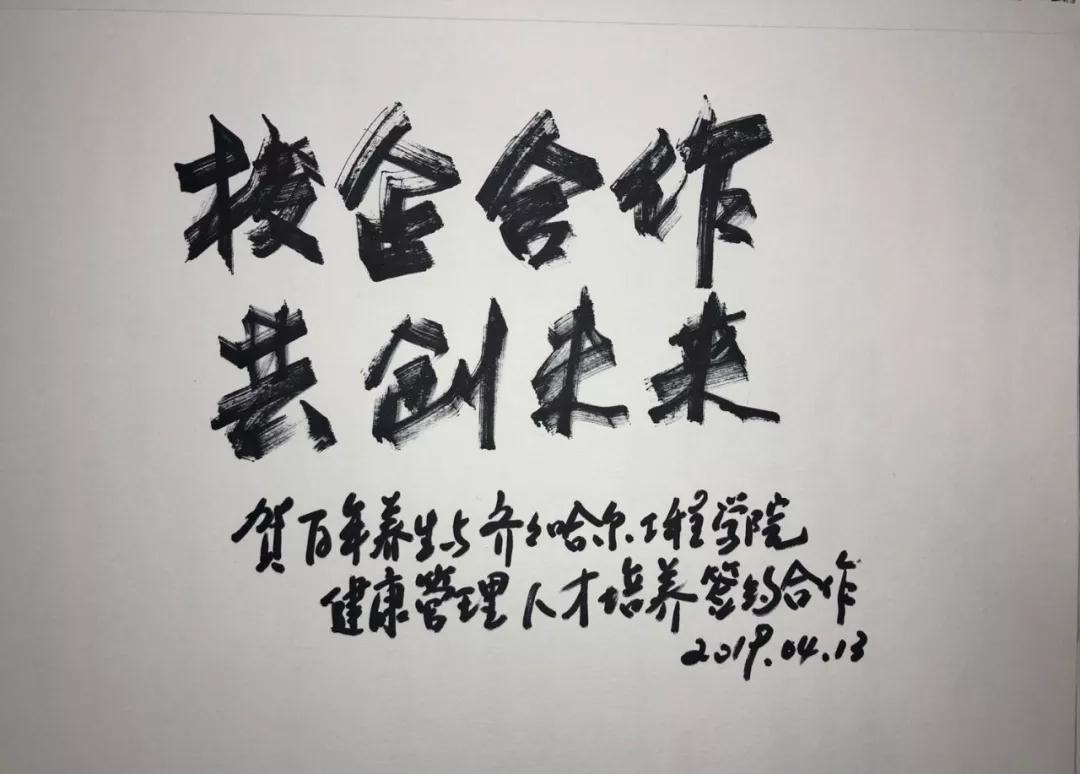 校企合作
共创未来
贺百年养生与齐々哈尔工程学院
健康管理人才培养签约合作
2019.04.13